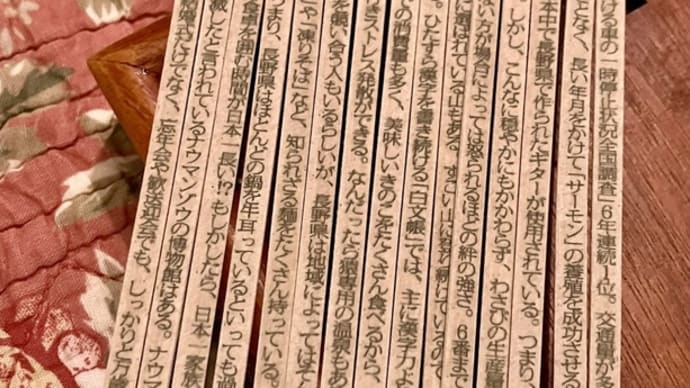 ける車の一時停止状況全国調査」6年連続1位。交通量が
となく、長い年月をかけて「サーモン」の養殖を成功させ
本中で長野県で作られたギターが使用されている。つまり
しかし、こんなに穏やかにもかかわらず、わさびの生産量
場合によっては怒られるほどの絆の強さ。6番ま
に選ばれている山もある。すごい山に登り続けているので
。ひたすら漢字を書き続ける「白文帳」では、主に漢字力よ
での消費量も多く、美味しいきのこをたくさん食べるから、
ストレス発散ができる。なんだったら猿専用の温泉もあ
を競い合う人もいるらしいが、長野県は地域によってはそ
や「凍りそば」など、知られざる麺をたくさん持っている。
つまり、長野県はほとんどの鍋を牛耳っているといっても過
食事を囲む時間が日本一長い!?もしかしたら、日本一家族
滅したと言われているナウマンゾウの博物館はある。ナウマ
結婚式だけでなく、忘年会や歓送迎会でも、しっかりと万歳